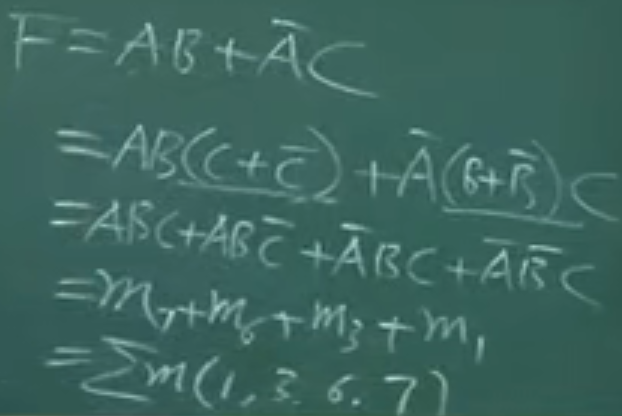 F=AB+A̅C
=AB(C+C̅)+A̅(B+B̅)C
=ABC+ABC̅+A̅BC+A̅B̅C
=m₇+m₆+m₃+m₁
=∑m(1,3.6.7)